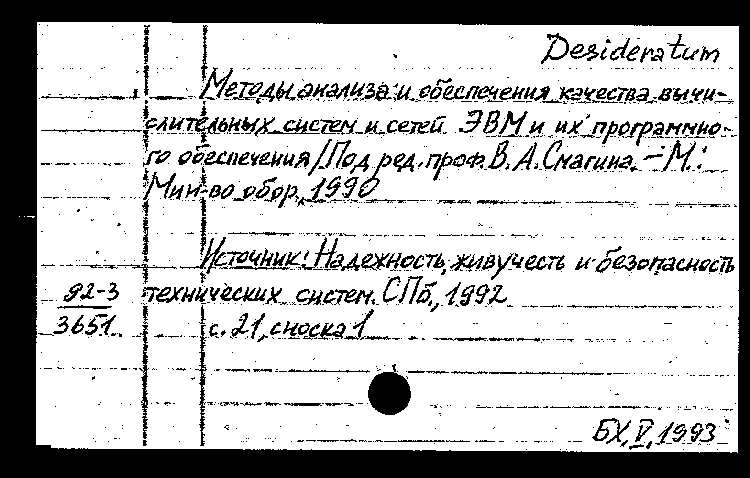 Desideratum
Методы анализа и обеспечения качества вычи-
слительных систем и сетей ЭВМ и их программно-
го обеспечения / Под ред. проф. В. А. Смагина. – М.:
Мин-во обор., 1990
Источник: Надежность, живучесть и безопасность
92-3 технических систем. СПб., 1992
3651 с. 21, сноска 1
БХ, V, 1993